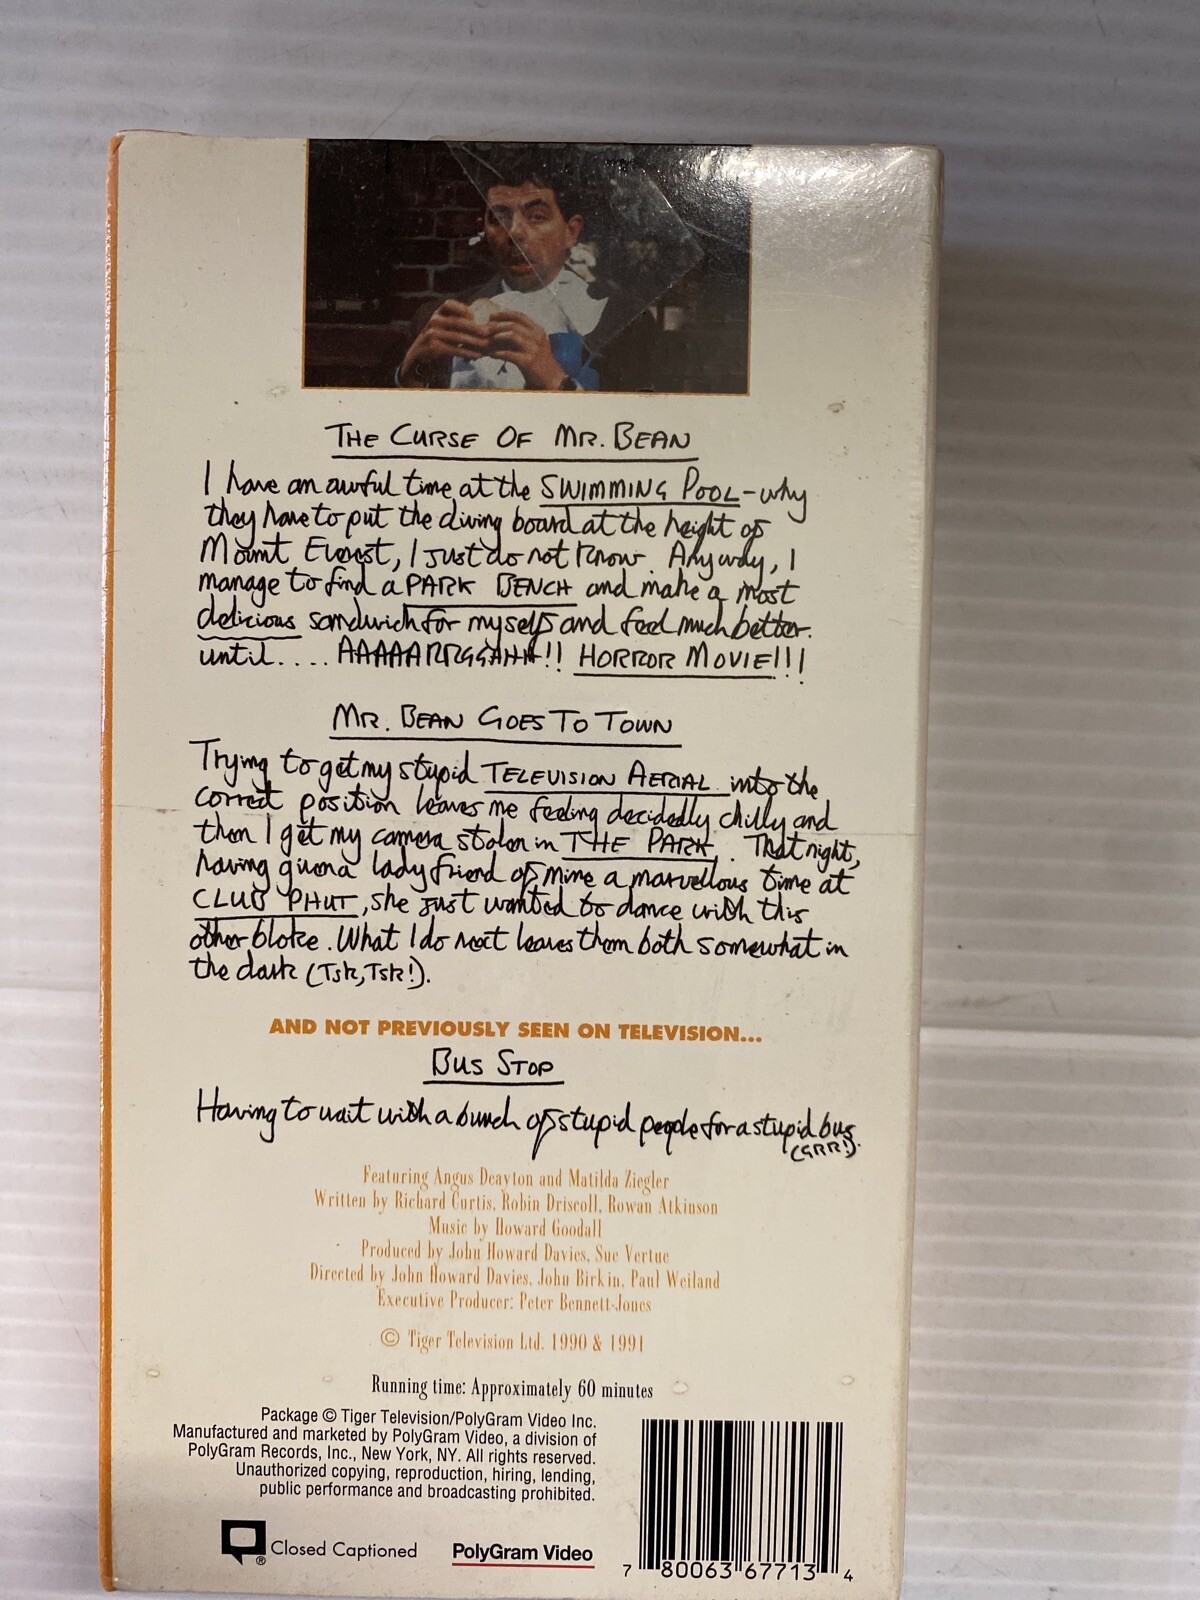 THE CURSE OF MR. BEAN
I have an awful time at the SWIMMING POOL - why
they have to put the diving board at the height of
Mount Everest, I just do not know. Anyway, I
manage to find a PARK BENCH and make a most
delicious sandwich for myself and feel much better.
until.... AAAAARRGGAHH!! HORROR MOVIE!!!
MR. BEAN GOES TO TOWN
Trying to get my stupid TELEVISION AERIAL into the
correct position leaves me feeling decidedly chilly and
then I get my camera stolen in THE PARK. That night,
having given a lady friend of mine a marvellous time at
CLUB PHUT, she just wanted to dance with this
other bloke. What I do next leaves them both somewhat in
the dark (Tsk, Tsk!).
AND NOT PREVIOUSLY SEEN ON TELEVISION...
BUS STOP
Having to wait with a bunch of stupid people for a stupid bus
(GRR!).
Featuring Angus Deayton and Matilda Ziegler
Written by Richard Curtis, Robin Driscoll, Rowan Atkinson
Music by Howard Goodall
Produced by John Howard Davies, Sue Vertue
Directed by John Howard Davies, John Birkin, Paul Weiland
Executive Producer: Peter Bennett-Jones
© Tiger Television Ltd. 1990 & 1991
Running time: Approximately 60 minutes
Package © Tiger Television/PolyGram Video Inc.
Manufactured and marketed by PolyGram Video, a division of
PolyGram Records, Inc., New York, NY. All rights reserved.
Unauthorized copying, reproduction, hiring, lending,
public performance and broadcasting prohibited.
® Closed Captioned
PolyGram Video
7 80063 67713 4